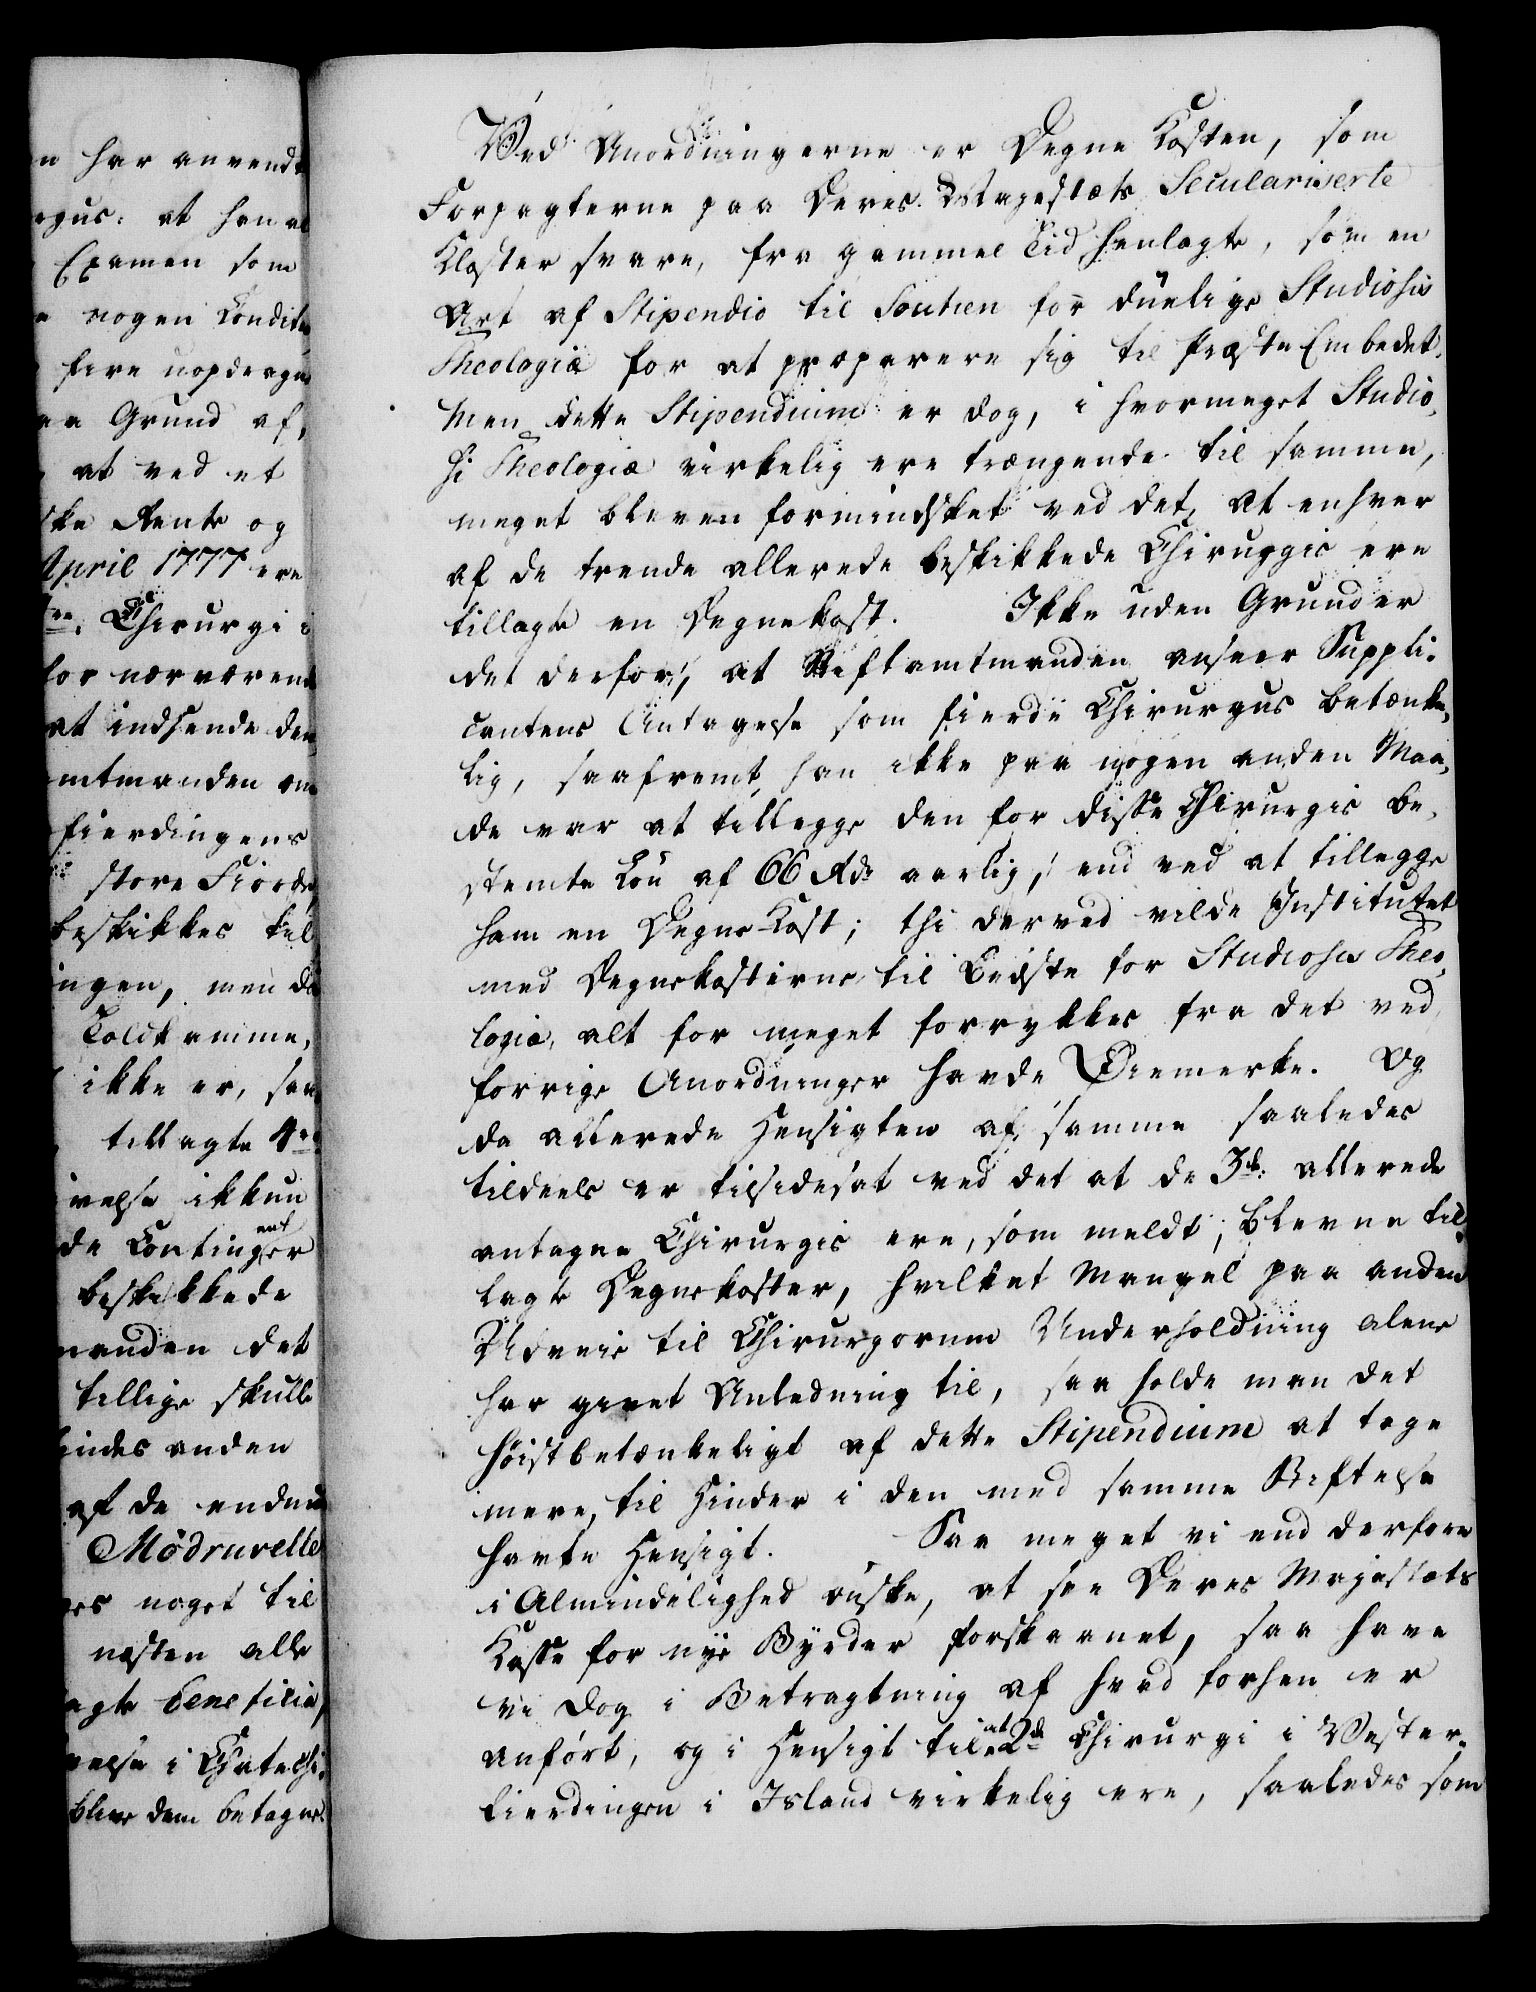 n har anvendt
rgus: at han al
Examen som
nogen Condit
fere uopdragne
aa Grund af,
at ved et
ske Rente og
April 1777 ere
Chirurgi i
for nærværende
at indsende den
mtmanden om
fierdingens
store Fiorde
beskikkes til
ingen, men da
Toldkamme,
ikke er, saa
tillagte 4re
velse ikkun
de Contingent er
beskikkede
manden det
tillige skulle
findes anden
af de endnu
Mödruvelle
es noget til
næsten alle
agte beneficia,
velse i Chatechi-
blive dem betagne
Ved Anordningerne er Degne Kosten, som
Forpagterne paa Deres Majestæts Seculariserte
Kloster svare, fra gammel Tid henlagte, som en
Art af Stipendio til Soutien for duelige Studiosis
Theologiæ for at præparere sig til Præste Embedet.
Men dette Stipendium er dog, i hvormeget Studio-
si Theologiæ virkelig ere trængende til samme,
meget bleven formindsket ved det, at enhver
af de trende allerede beskikkede Chirurgis ere
tillagt en Degnekost. Ikke uden Grund er
det derfor, at Stiftamtmanden anseer Suppli-
cantens Antagelse som fierde Chirurgus betænke-
lig, saafremt han ikke paa nogen anden Maa-
de var at tillegge den for disse Chirurgis be-
stemte Lön af 66 Rdr aarlig, end ved at tillegge
ham en Degne-Kost; thi derved vilde Institutet
med Degnekosterne til Bedste for Studiosis Theo-
logiæ, alt for meget forrykkes fra det ved
forrige Anordninger havde Øiemerke. Og
da allerede Hensigten af samme saaledes
tildeels er tilsidesat ved det at de 3de allerede
antagne Chirurgis ere, som meldt, blevne til-
lagte Degnekoster, hvilket Mangel paa anden
Udveie til Chirurgorum Underholdning alene
har givet Anledning til, saa holde man det
höistbetænkeligt af dette Stipendium at tage
mere, til Hinder i den med samme Stiftelse
havte Hensigt. Saa meget vi end derfore
i Almindelighed önske, at see Deres Majestæts
Kasse for nye Byrder forskaanet, saa have
vi dog i Betragtning af hvad forhen er
anført, og i Hensigt til at 2de Chirurgi i Vester-
fierdingen i Island virkelig ere, saaledes som